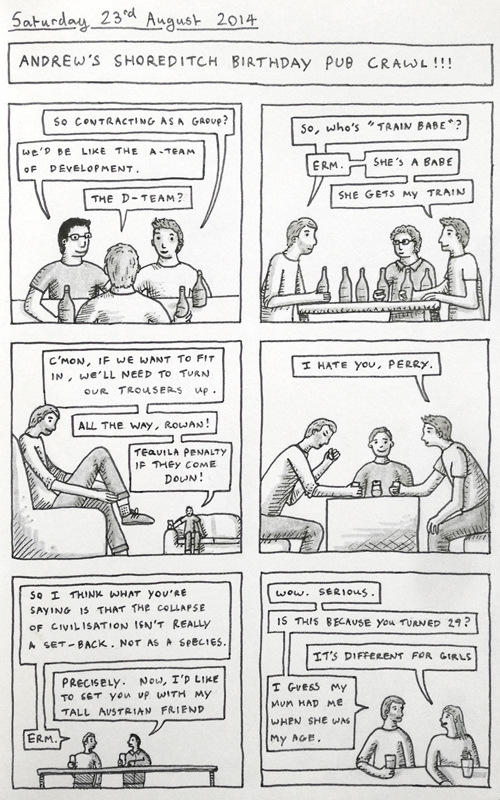 Saturday 23rd August 2014
ANDREW'S SHOREDITCH BIRTHDAY PUB CRAWL!!!
SO CONTRACTING AS A GROUP?
WE'D BE LIKE THE A-TEAM
OF DEVELOPMENT.
THE D-TEAM?
SO, WHO'S "TRAIN BABE"?
ERM.
SHE'S A BABE
SHE GETS MY TRAIN
C'MON, IF WE WANT TO FIT
IN, WE'LL NEED TO TURN
OUR TROUSERS UP.
ALL THE WAY, ROWAN!
TEQUILA PENALTY
IF THEY COME
DOWN!
I HATE YOU, PERRY.
SO I THINK WHAT YOU'RE
SAYING IS THAT THE COLLAPSE
OF CIVILISATION ISN'T REALLY
A SET-BACK. NOT AS A SPECIES.
PRECISELY. NOW, I'D LIKE
TO SET YOU UP WITH MY
TALL AUSTRIAN FRIEND
ERM.
WOW. SERIOUS.
IS THIS BECAUSE YOU TURNED 29?
IT'S DIFFERENT FOR GIRLS
I GUESS MY
MUM HAD ME
WHEN SHE WAS
MY AGE.